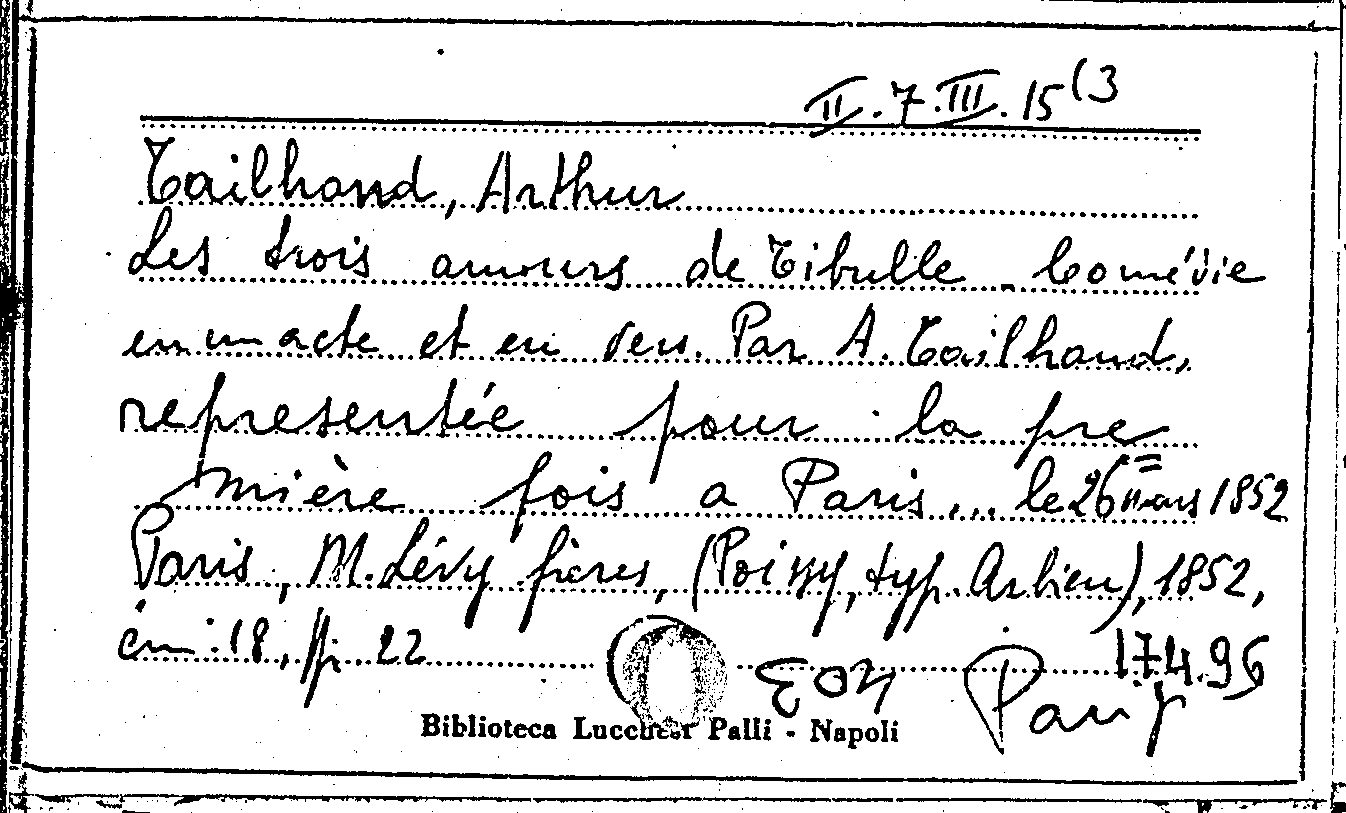 II.7.III.15(3
Tailhand, Arthur
Les trois amours de Tibulle - Comédie
en un acte et en vers. Par A. Tailhand,
representée pour la pre
mière fois a Paris... le 26 mars 1852
Paris, M. Lévy frères, (Poissy, typ. Arbieu), 1852,
cm. 18, pp. 22
17496
Biblioteca Lucchesi Palli - Napoli